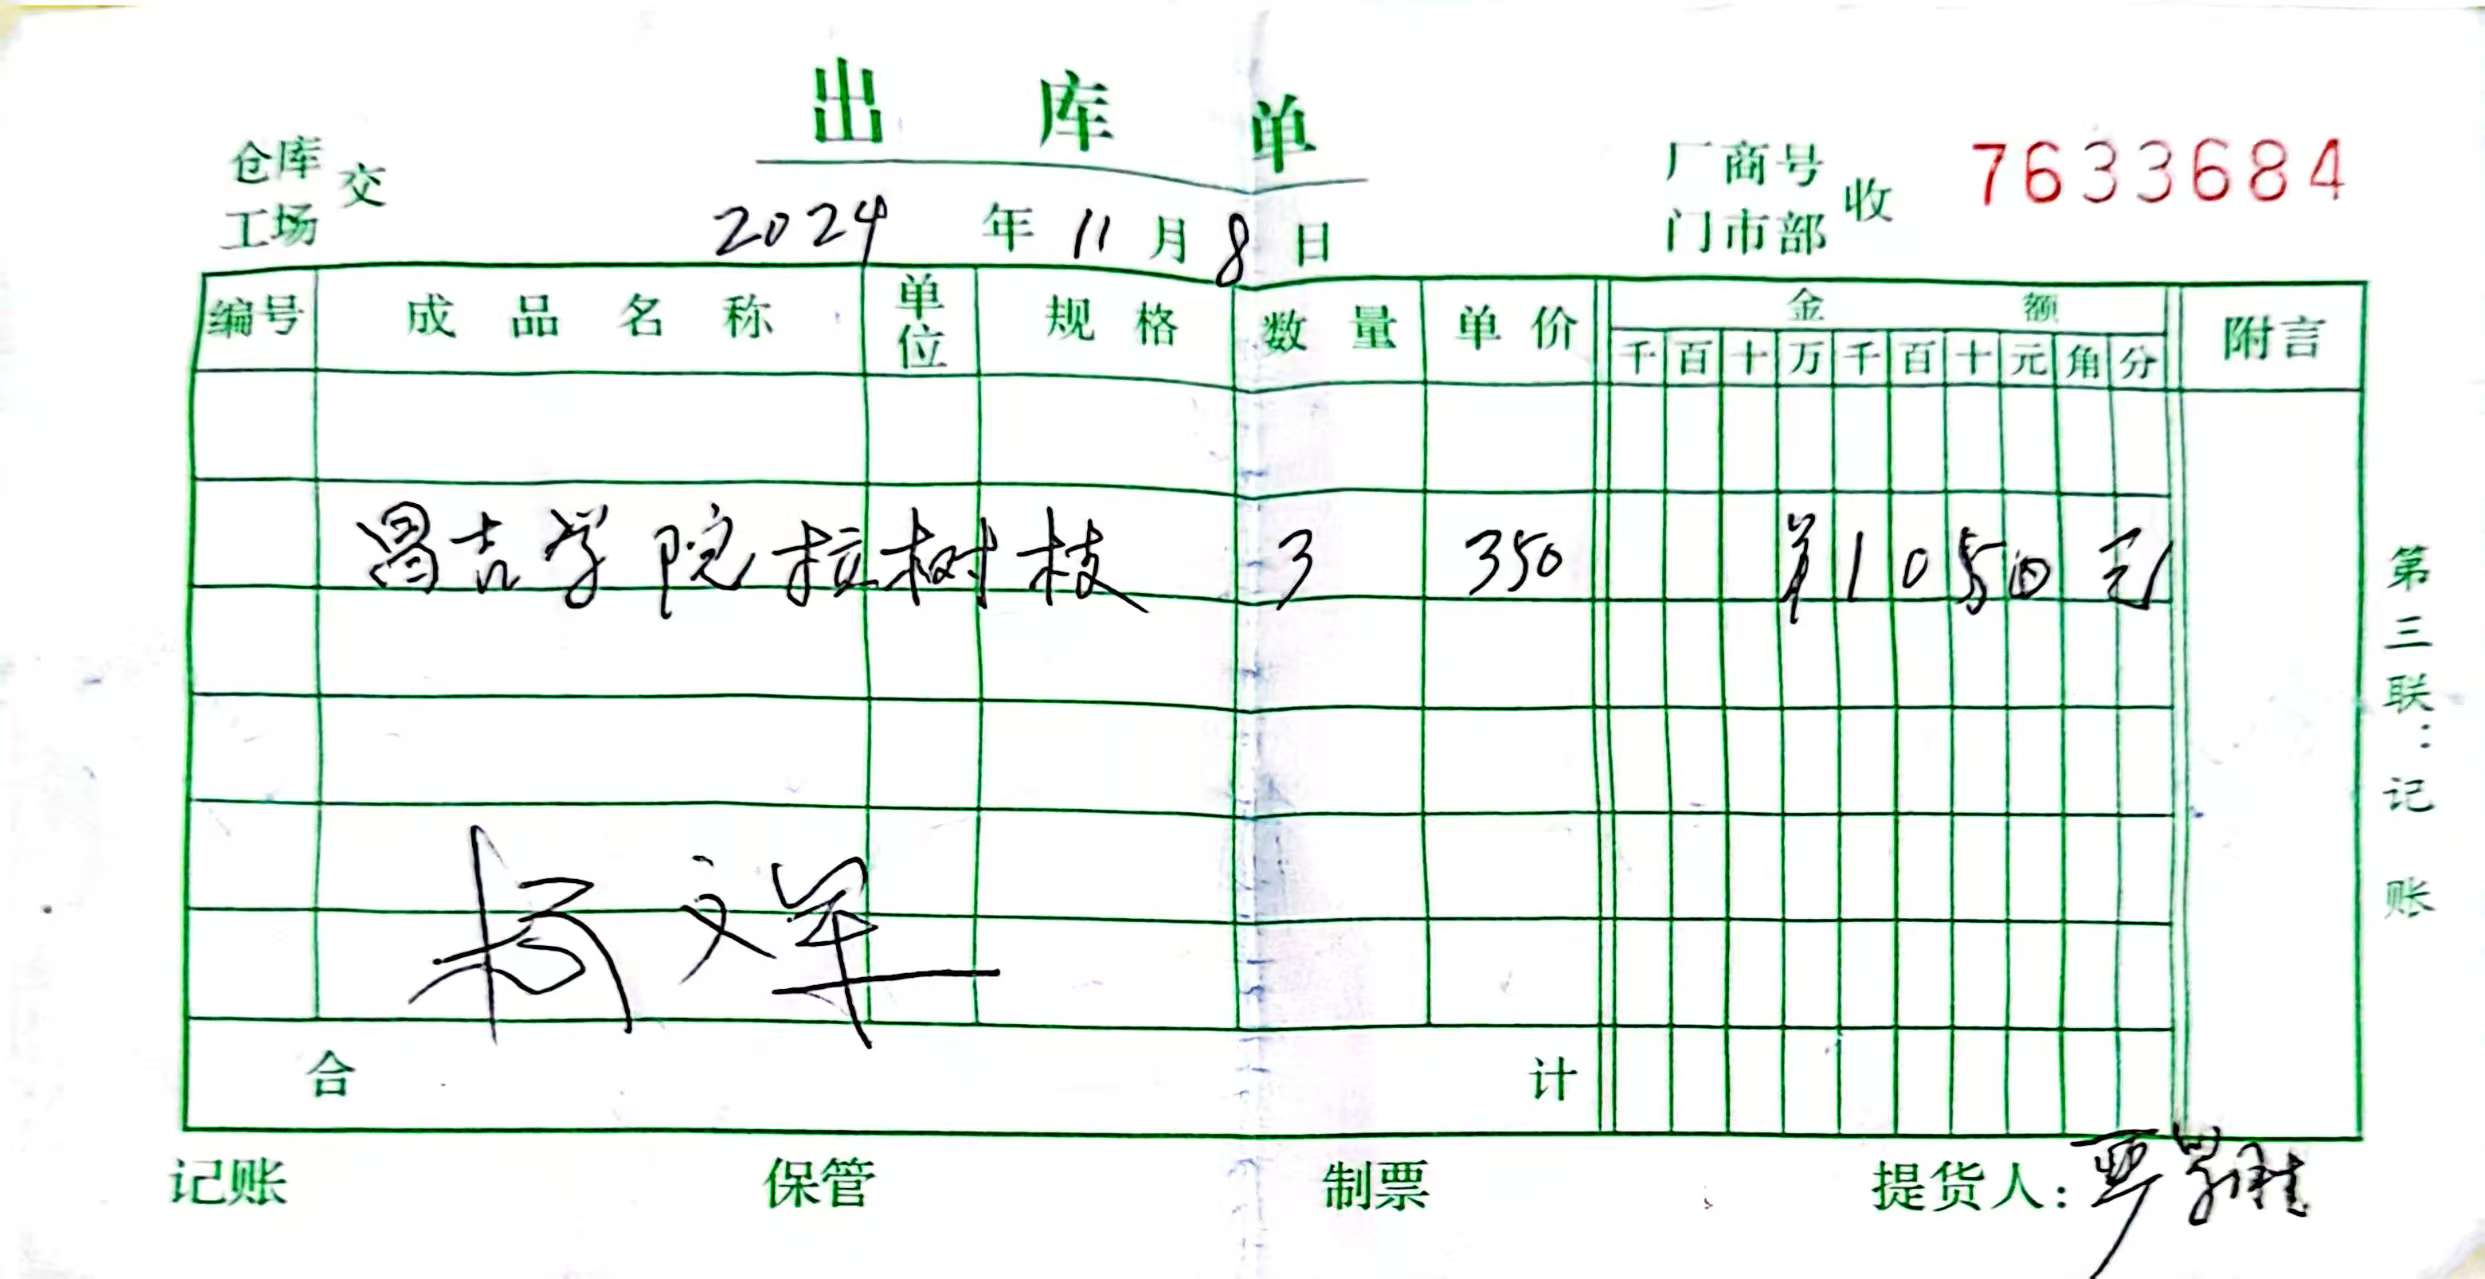 出库单
仓库 工场 交
2024年11月8日
厂商号 门市部 收 7633684
编号 成品名称 单位 规格 数量 单价 金额 附言
千 百 十 万 千 百 十 元 角 分
昌吉学院拉树枝 3 350 ¥1050元
杨文军
合计
第三联:记账
记账 保管 制票 提货人: